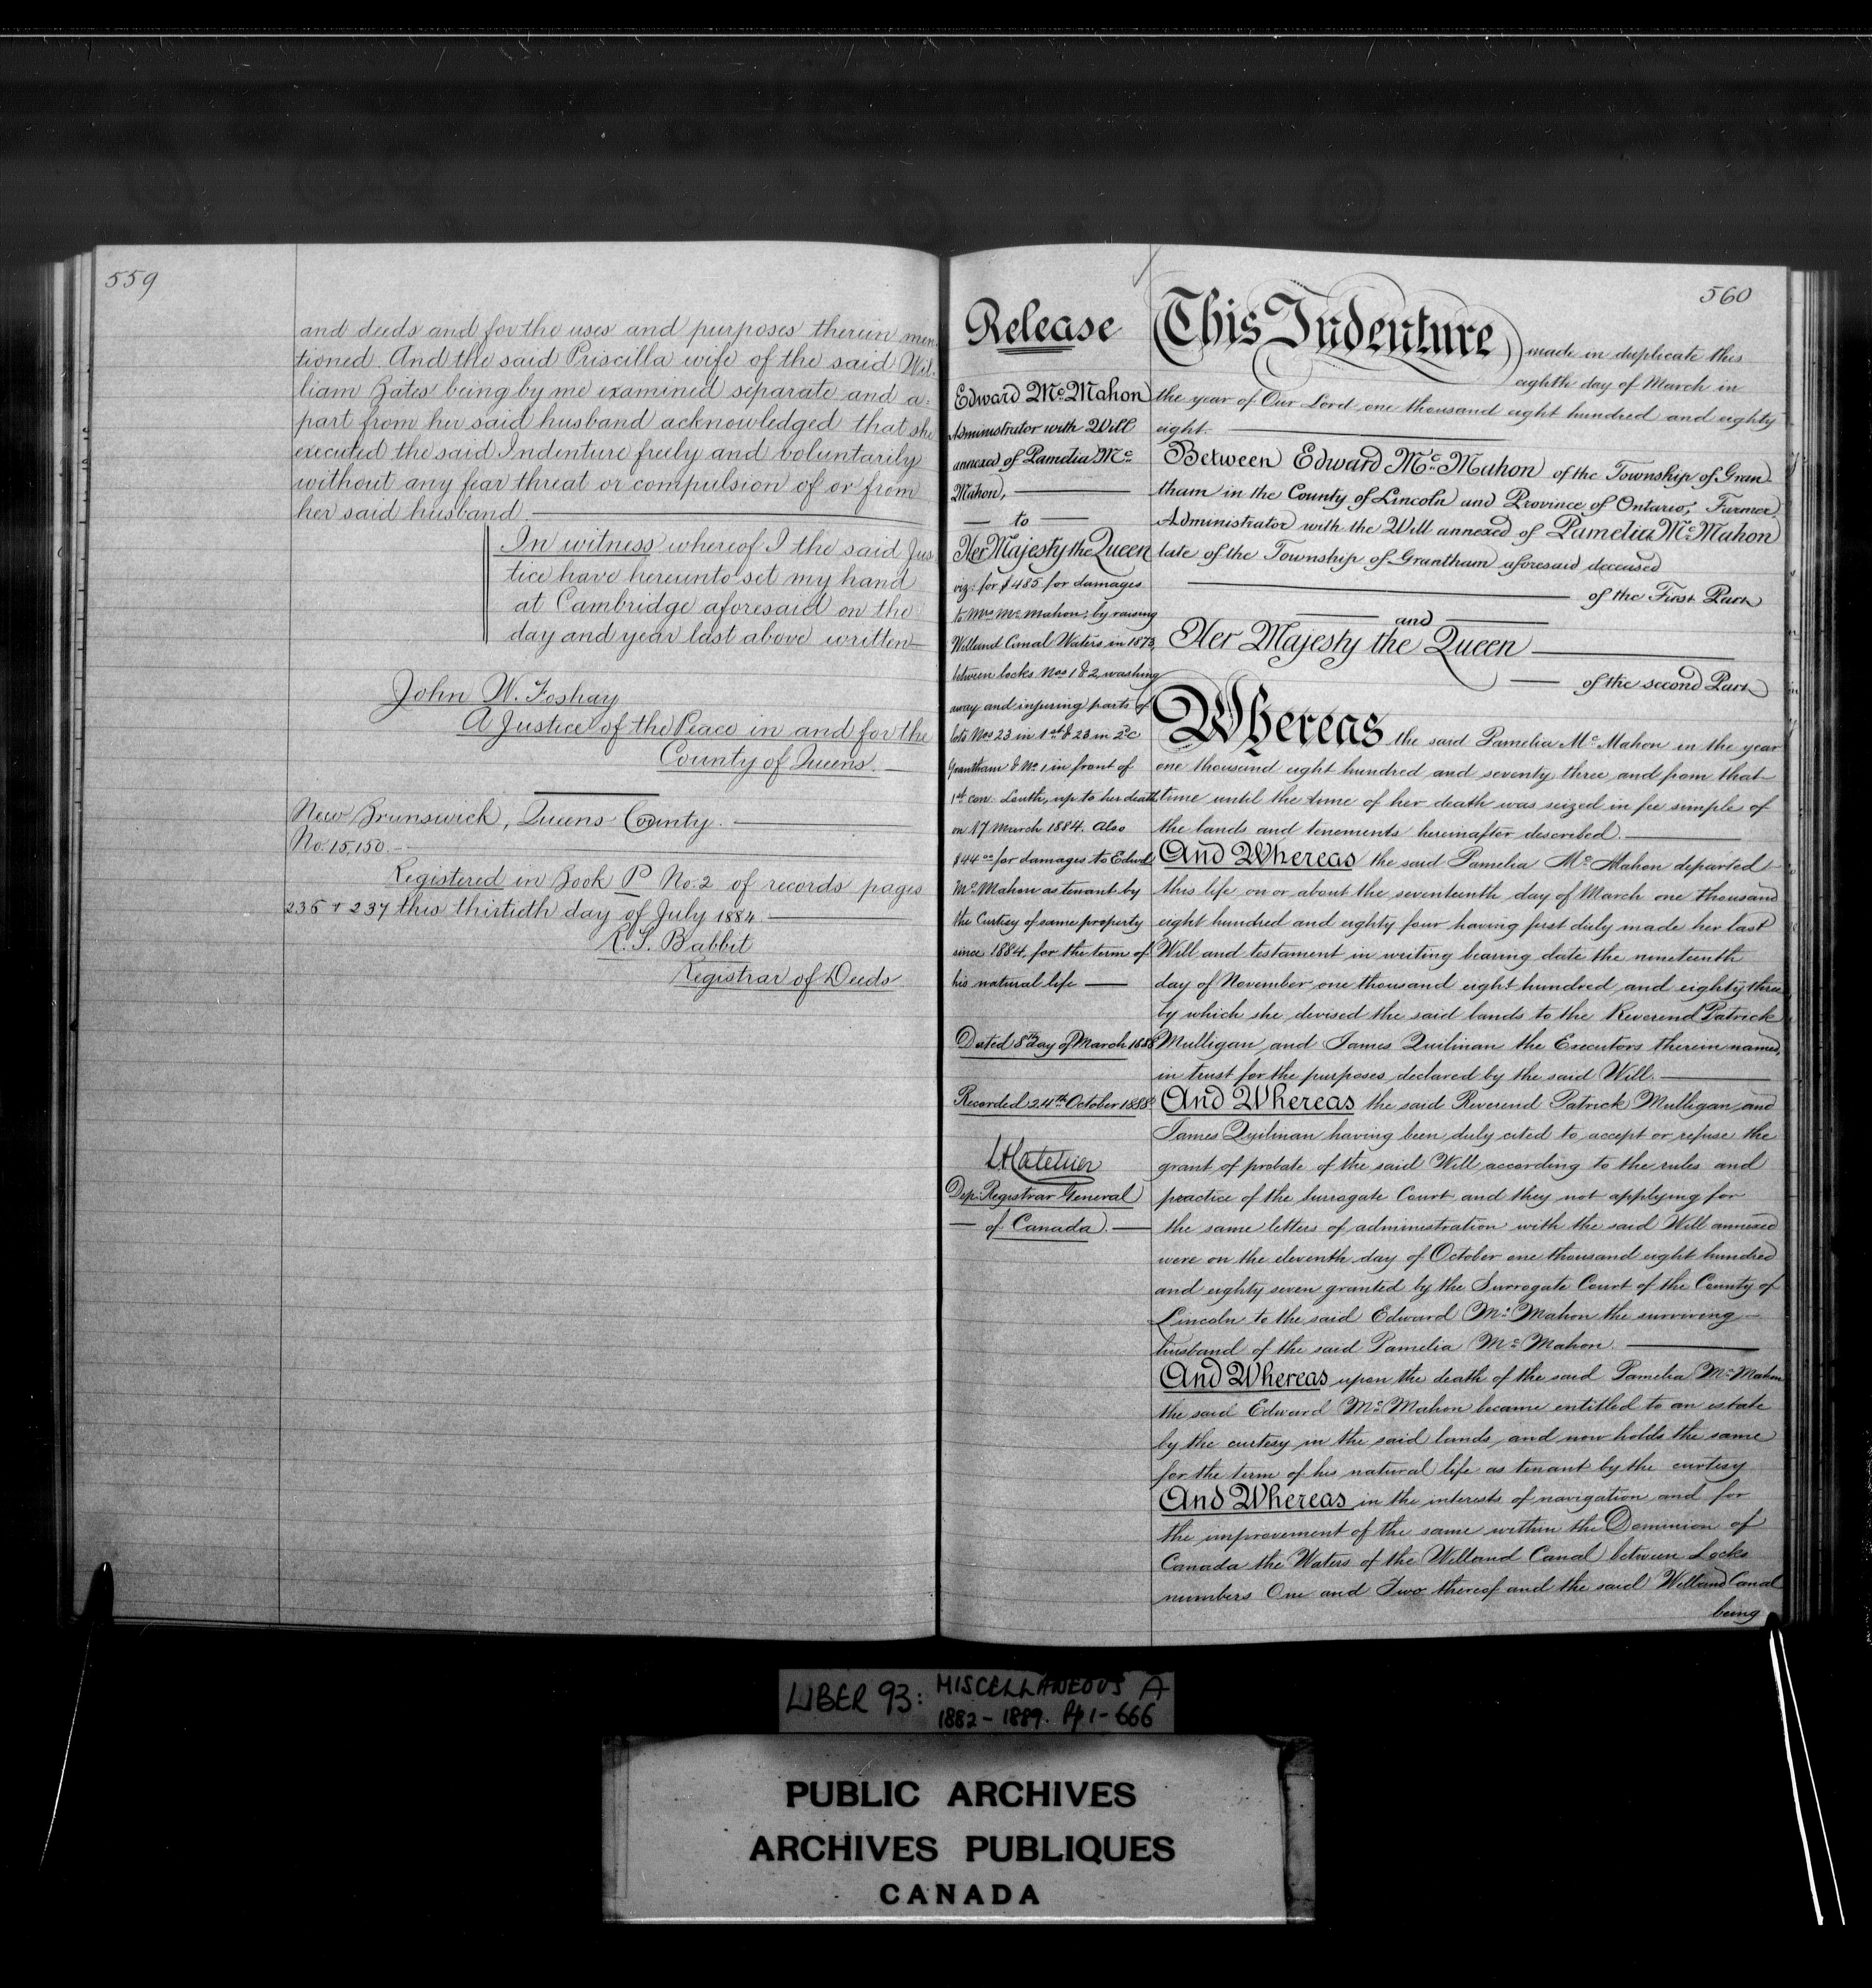 559
and deeds and for the uses and purposes therein men
tioned. And the said Priscilla wife of the said Wil-
liam Bates being by me examined separate and a-
part from her said husband acknowledged that she
executed the said Indenture freely and voluntarily
without any fear threat or compulsion of or from
her said husband
In witness whereof I the said Jus
tice have hereunto set my hand
at Cambridge aforesaid on the
day and year last above written
John W. Foshay
A Justice of the Peace in and for the
County of Queens.
New Brunswick, Queens County.
No. 15,150.
Registered in Book P No. 2 of records pages
236 + 237 this thirtieth day of July 1884.
R. S. Babbit
Registrar of Deeds
Release
Edward Mc Mahon
Administrator with Will
annexed of Pamelia Mc
Mahon,
to
Her Majesty the Queen
viz: for $485 for damages
to Mrs Mc Mahon; by raising
Welland Canal Waters in 1873,
between locks Nos 1 & 2, washing
away and injuring parts of
lots Nos 23 in 1st & 23 in 2d C
Grantham & No 1 in front of
1st con. Louth, up to her death
on 17 March 1884. Also
$44 00 for damages to Edwd
Mc Mahon as tenant by
the Curtesy of same property
since 1884, for the term of
his natural life
Dated 8th day of March 1888
Recorded 24th October 1888
Dep. Registrar General
of Canada.
560
This Indenture made in duplicate this
eighth day of March in
the year of Our Lord one thousand eight hundred and eighty
eight.
Between Edward Mc Mahon of the Township of Gran-
tham in the County of Lincoln and Province of Ontario, Farmer,
Administrator with the Will annexed of Pamelia Mc Mahon
late of the Township of Grantham aforesaid deceased
of the First Part
and
Her Majesty the Queen
of the second Part
Whereas the said Pamelia Mc Mahon in the year
one thousand eight hundred and seventy three and from that
time until the time of her death was seized in fee simple of
the lands and tenements hereinafter described.
And Whereas the said Pamelia Mc Mahon departed
this life on or about the seventeenth day of March one thousand
eight hundred and eighty four having first duly made her last
Will and testament in writing bearing date the nineteenth
day of November one thousand eight hundred and eighty three
by which she devised the said lands to the Reverend Patrick
Mulligan and James Quilinan the Executors therein named,
in trust for the purposes declared by the said Will.
And Whereas the said Reverend Patrick Mulligan and
James Quilinan having been duly cited to accept or refuse the
grant of probate of the said Will according to the rules and
practice of the Surrogate Court and they not applying for
the same letters of administration with the said Will annexed
were on the eleventh day of October one thousand eight hundred
and eighty seven granted by the Surrogate Court of the County of
Lincoln to the said Edward Mc Mahon the surviving
husband of the said Pamelia Mc Mahon.
And Whereas upon the death of the said Pamelia Mc Mahon
the said Edward Mc Mahon became entitled to an estate
by the curtesy in the said lands and now holds the same
for the term of his natural life as tenant by the curtesy
And Whereas in the interests of navigation and for
the improvement of the same within the Dominion of
Canada the Waters of the Welland Canal between Locks
numbers One and Two thereof and the said Welland Canal
being
LIBER 93: MISCELLANEOUS A
1882 - 1889. Pp 1-666
PUBLIC ARCHIVES
ARCHIVES PUBLIQUES
CANADA